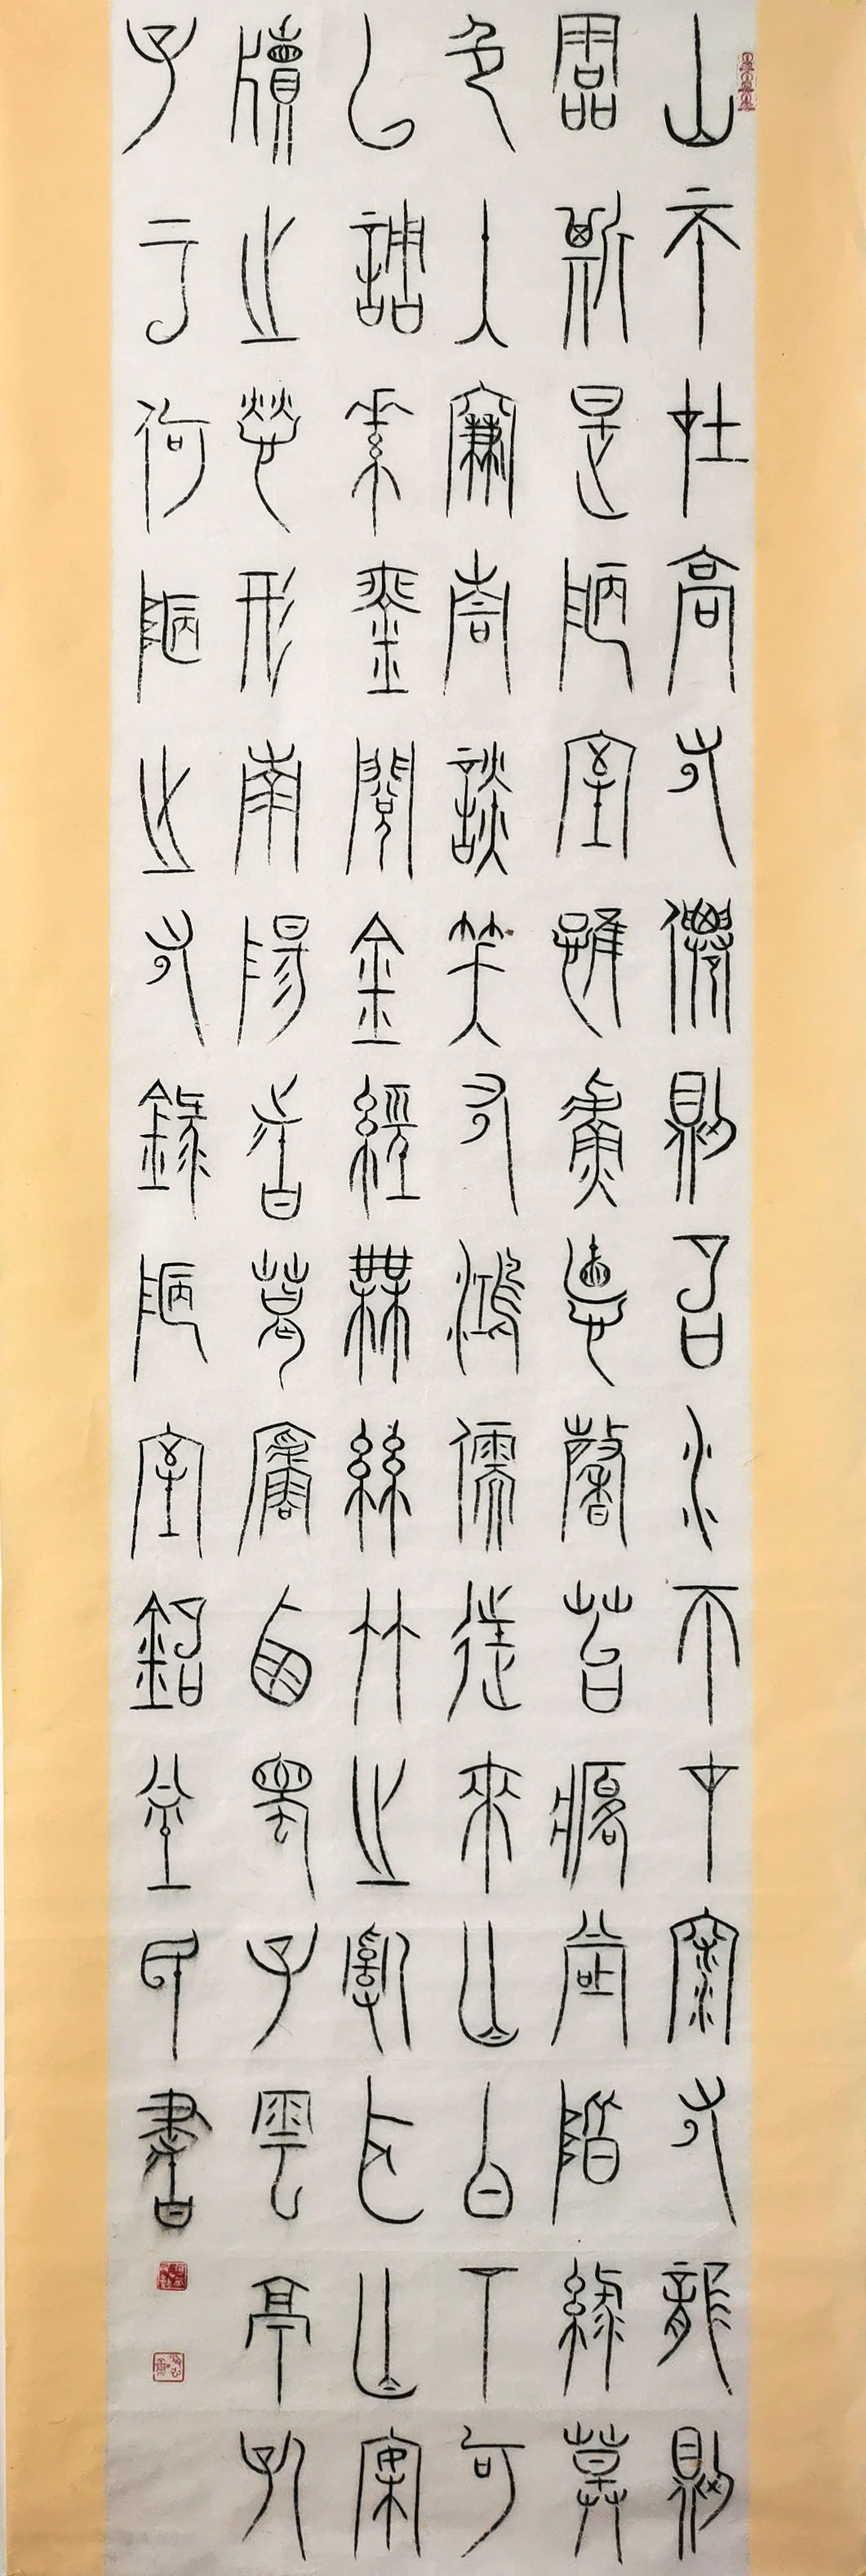 山不在高有僊則名水不在深有龍則
靈斯是陋室惟吾德馨苔痕上階緑草
色入簾青談笑有鴻儒往來亡白丁可
以調素琴閱金經無絲竹之亂耳亡案
牘之勞形南陽諸葛廬西蜀子雲亭孔
子云何陋之有錄陋室銘書